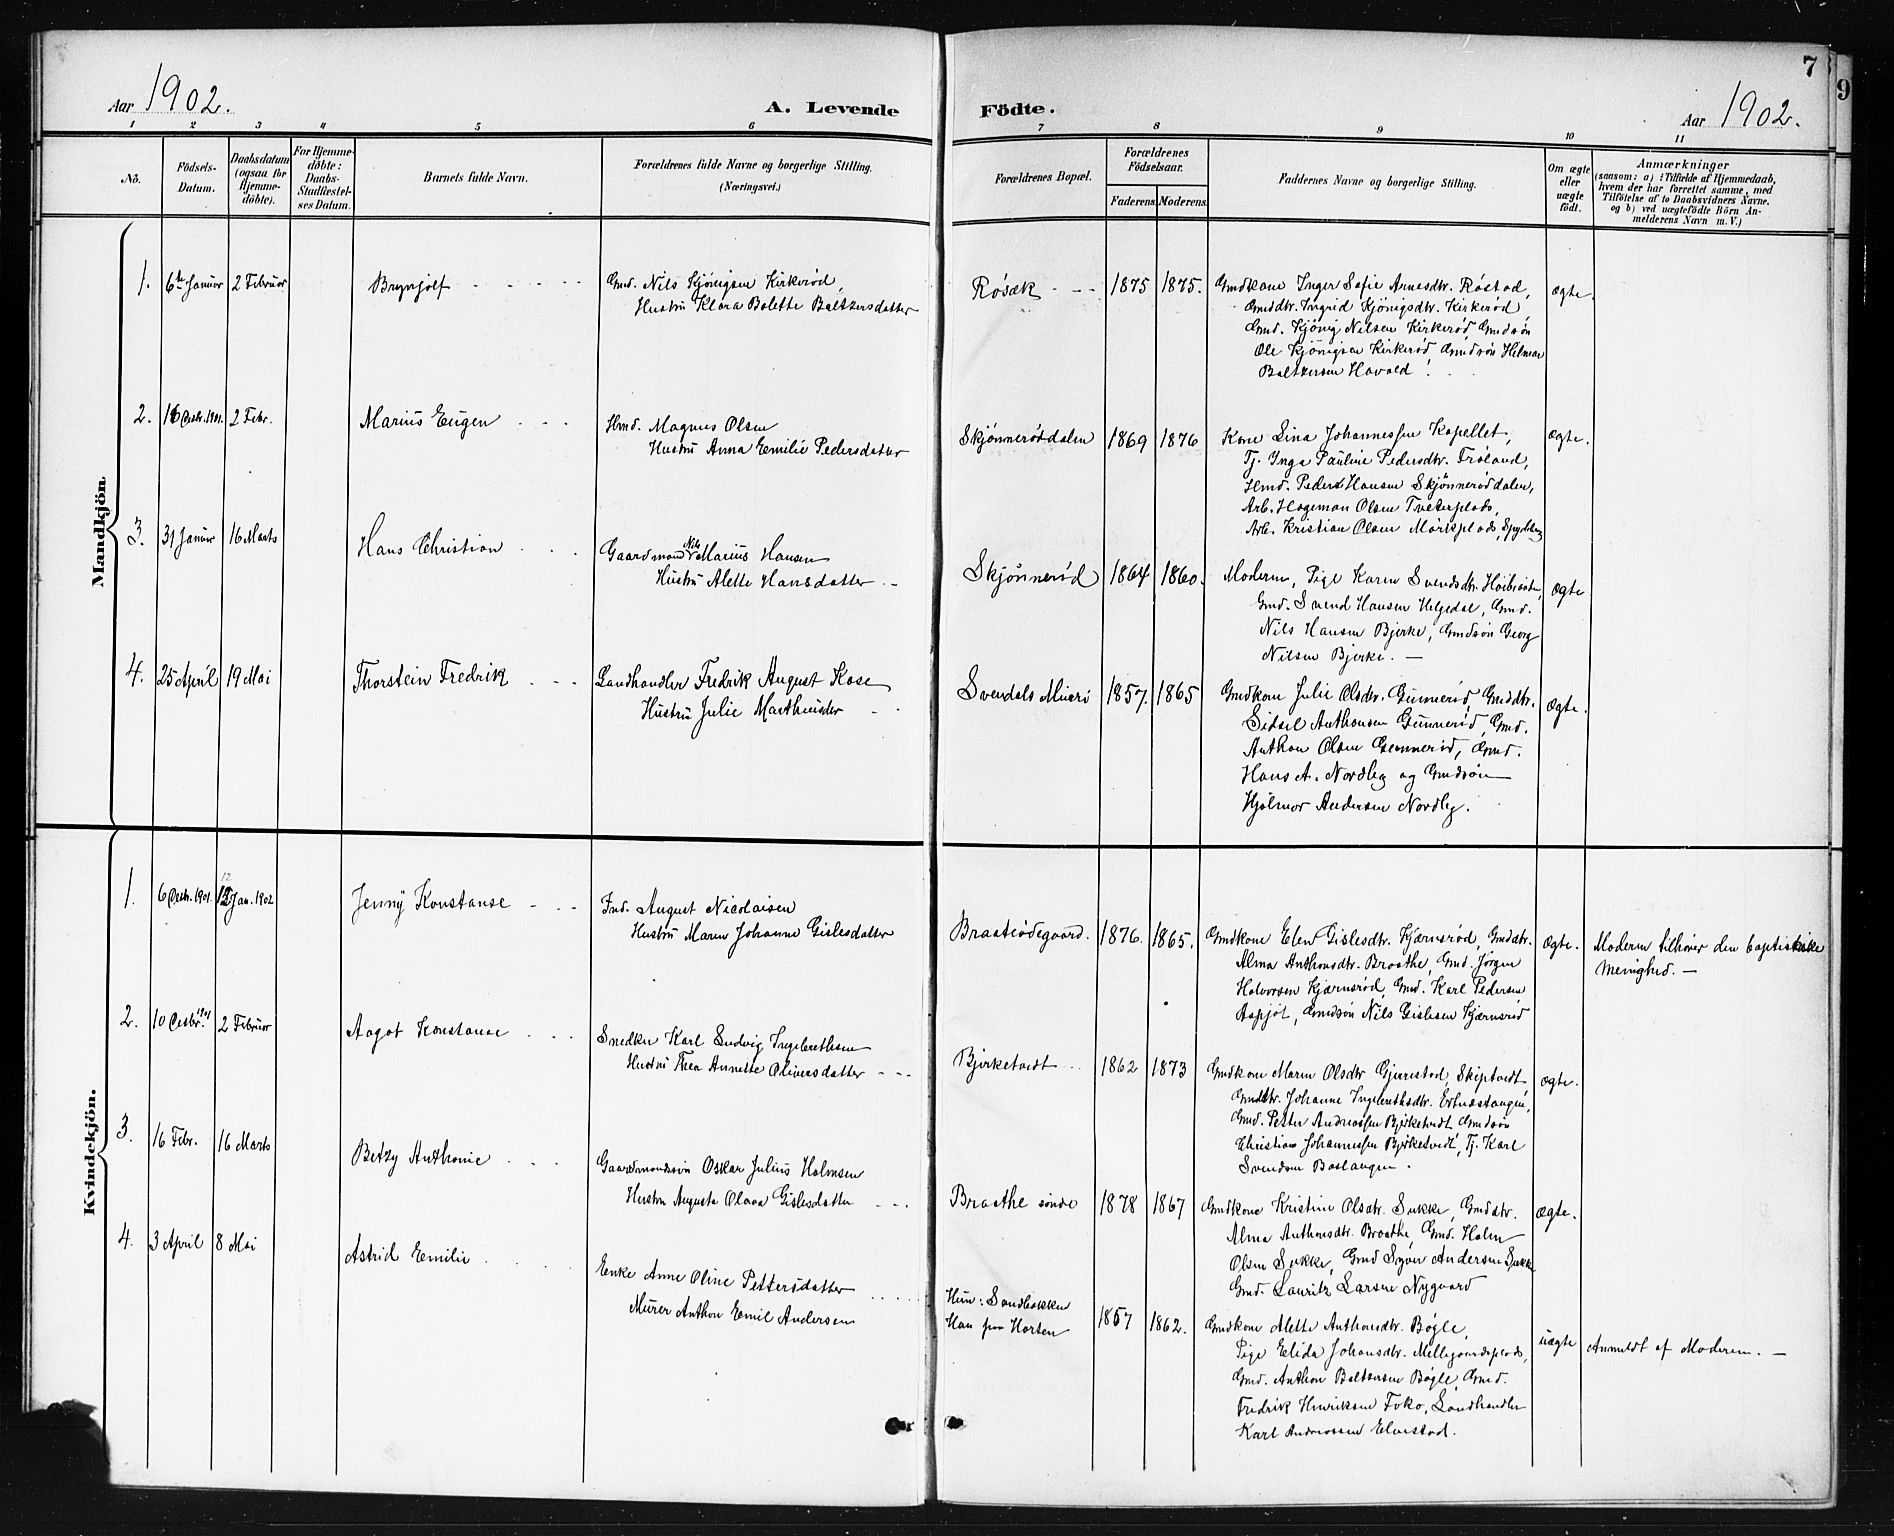 Aar 1902.
A. Levende
Födte.
Aar 1902.
7
9
1 2 3 4 5 6 7 8 9 10 11
No.
Födsels-
Datum.
Daabsdatum
(ogsaa for
Hjemme-
döbte).
For Hjemme-
döbte:
Daabs-
Stadfæstel-
ses Datum.
Barnets fulde Navn.
Forældrenes fulde Navne og borgerlige Stilling.
(Næringsvei.)
Forældrenes Bopæl.
Forældrenes
Födselsaar.
Faderens. Moderens.
Faddernes Navne og borgerlige Stilling.
Om ægte
eller
uægte
födt.
Anmærkninger
(saasom: a) i Tilfælde af Hjemmedaab,
hvem der har forrettet samme, med
Tilföielse af to Daabsvidners Navne.
og b) ved uægtefödte Börn An-
melderens Navn m. V.)
Mandkjön
1. 6te Januar 2 Februar Brynjolf
Gmd. Nils Kjönigsen Kirkeröd,
Hustru Klara Bolette Baltzersdatter
Rösæk 1875 1875.
Gmdkone Inger Sofie Arnesdtr. Röstad,
Gmddtr. Ingrid Kjönigsdtr. Kirkeröd
Gmd. Kjönig Nilsen Kirkeröd Gmdsön
Ole Kjönigsen Kirkeröd, Gmdsön Hilmar
Baltzersen Havold.
ægte.
2. 16 Decbr. 1901. 2 Febr. Marius Eugen
Hmd. Magnus Olsen
Hustru Anna Emilie Pedersdatter
Skjønnerøddalen 1869 1876
Kone Lina Johannessen Kapellet,
Tj. Inga Pauline Pedersdtr. Fröland,
Hmd. Peder Hansen Skjønnerøddalen,
Arb. Hageman Olsen Tveterplads,
Arb. Kristian Olsen Mörkplads,
ægte.
3. 31 Januar 16 Marts Hans Christian
Gaardmand Nils Marius Hansen
Hustru Alette Hansdatter
Skjønnerød 1864 1860.
Moderen, Pige Karen Svendsdtr. Höibraaten,
Gmd. Svend Hansen Helgedal, Gmd.
Nils Hansen Bjerke, Gmdsön Georg
Nilsen Bjerke.
ægte
4. 25 April 19 Mai Thorstein Fredrik
Landhandler Fredrik August Kase
Hustru Julie Marthinsdtr
Svendals Mineri 1857. 1865
Gmdkone Julie Olsdtr. Gunneröd, Gmddtr.
Sidsel Anthonsen Gunneröd, Gmd.
Anthon Olsen Gunneröd, Gmd.
Hans A. Nordby og Gmdsön
Hjalmar Andersen Nordby.
ægte.
Kvindekjön.
1. 6 Decbr. 1901. 12 Jan. 1902 Jenny Konstanse
Ind. August Nicolaisen
Hustru Maren Johanne Gislesdatter
Braatiødegaard. 1876. 1865.
Gmdkone Elen Gislesdtr. Kjærnsröd, Gmddtr.
Alma Anthonsdtr. Braathe, Gmd. Jörgen
Halvorsen Kjærnsröd, Gmd. Karl Pedersen
Aspjöt, Gmdsön Nils Gislesen Kjærnsröd
ægte.
Moderen tilhører den baptistiske
Menighed.
2. 10 Decbr. 1901 2 Februar Aagot Konstanse
Snedker Karl Ludvig Ingebrethsen
Hustru Thea Annette Oliversdatter
Bjirketvedt 1862 1873
Gmdkone Maren Olsdtr Gjurestad, Skiptvedt,
Gmddtr. Johanne Ingebrethsdtr. Ertnæstangen,
Gmd. Petter Andreassen Bjirketvedt Gmdsön
Christian Johannessen Bjirketvedt, Tj. Karl
Svendsen Baslangen.
ægte.
3. 16 Febr. 16 Marts Betzy Anthonie
Gaardmandssön Oskar Julius Holmsen
Hustru Augusta Olava Gislesdatter
Braathe søndre 1878 1867
Gmdkone Kristine Olsdtr. Sukke, Gmddtr.
Alma Anthonsdtr. Braathe, Gmd. Holm
Olsen Sukke, Gmd Syver Andersen Sukke
Gmd. Lauritz Larsen Nygaard
ægte.
4. 3 April 8 Mai Astrid Emilie
Enke Anne Oline Pettersdatter
Murer Anthon Emil Andersen
Hun: Sandbakken
Han fra Horten
1857 1862.
Gmdkone Mette Anthonsdtr. Bøgle,
Pige Elida Johansdtr. Mellegaardsplads,
Gmd. Anthon Baltzersen Bøgle, Gmd.
Fredrik Henriksen Foko, Landhandler
Karl Andreassen Elvestad.
uægte
Anmeldt af Moderen.